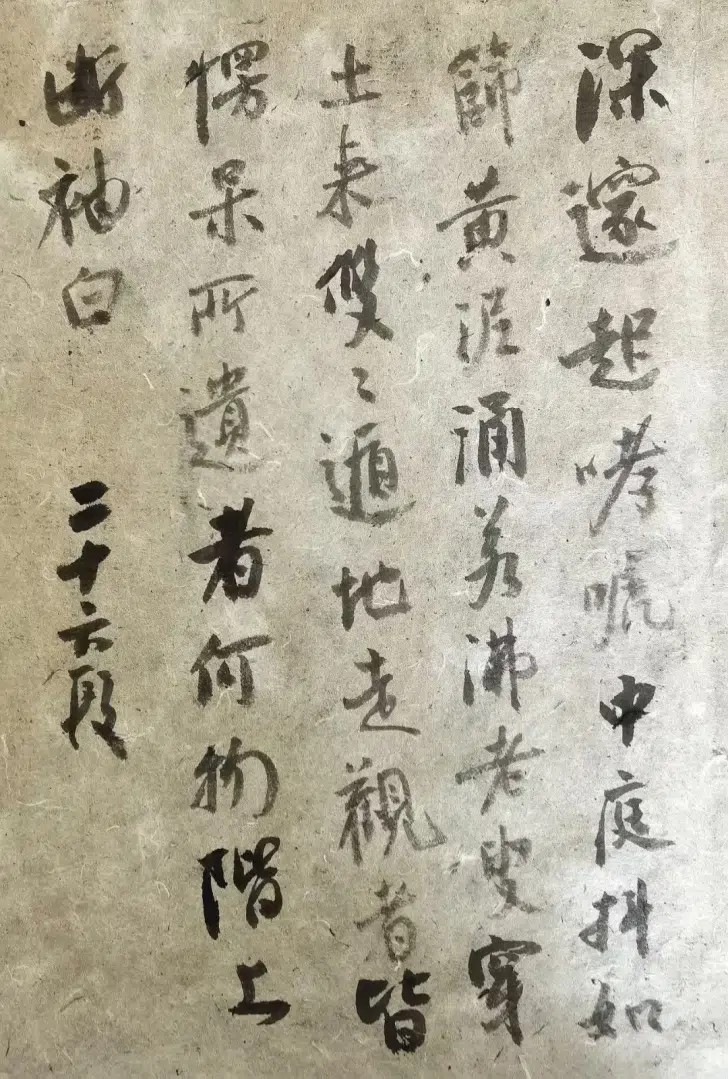 深邃起哮唬中庭抖如
篩黃泥涌若沸老叟穿
土来雙〻遁地走觀者皆
愕呆所遺者何物階上
断袖白
二十六段